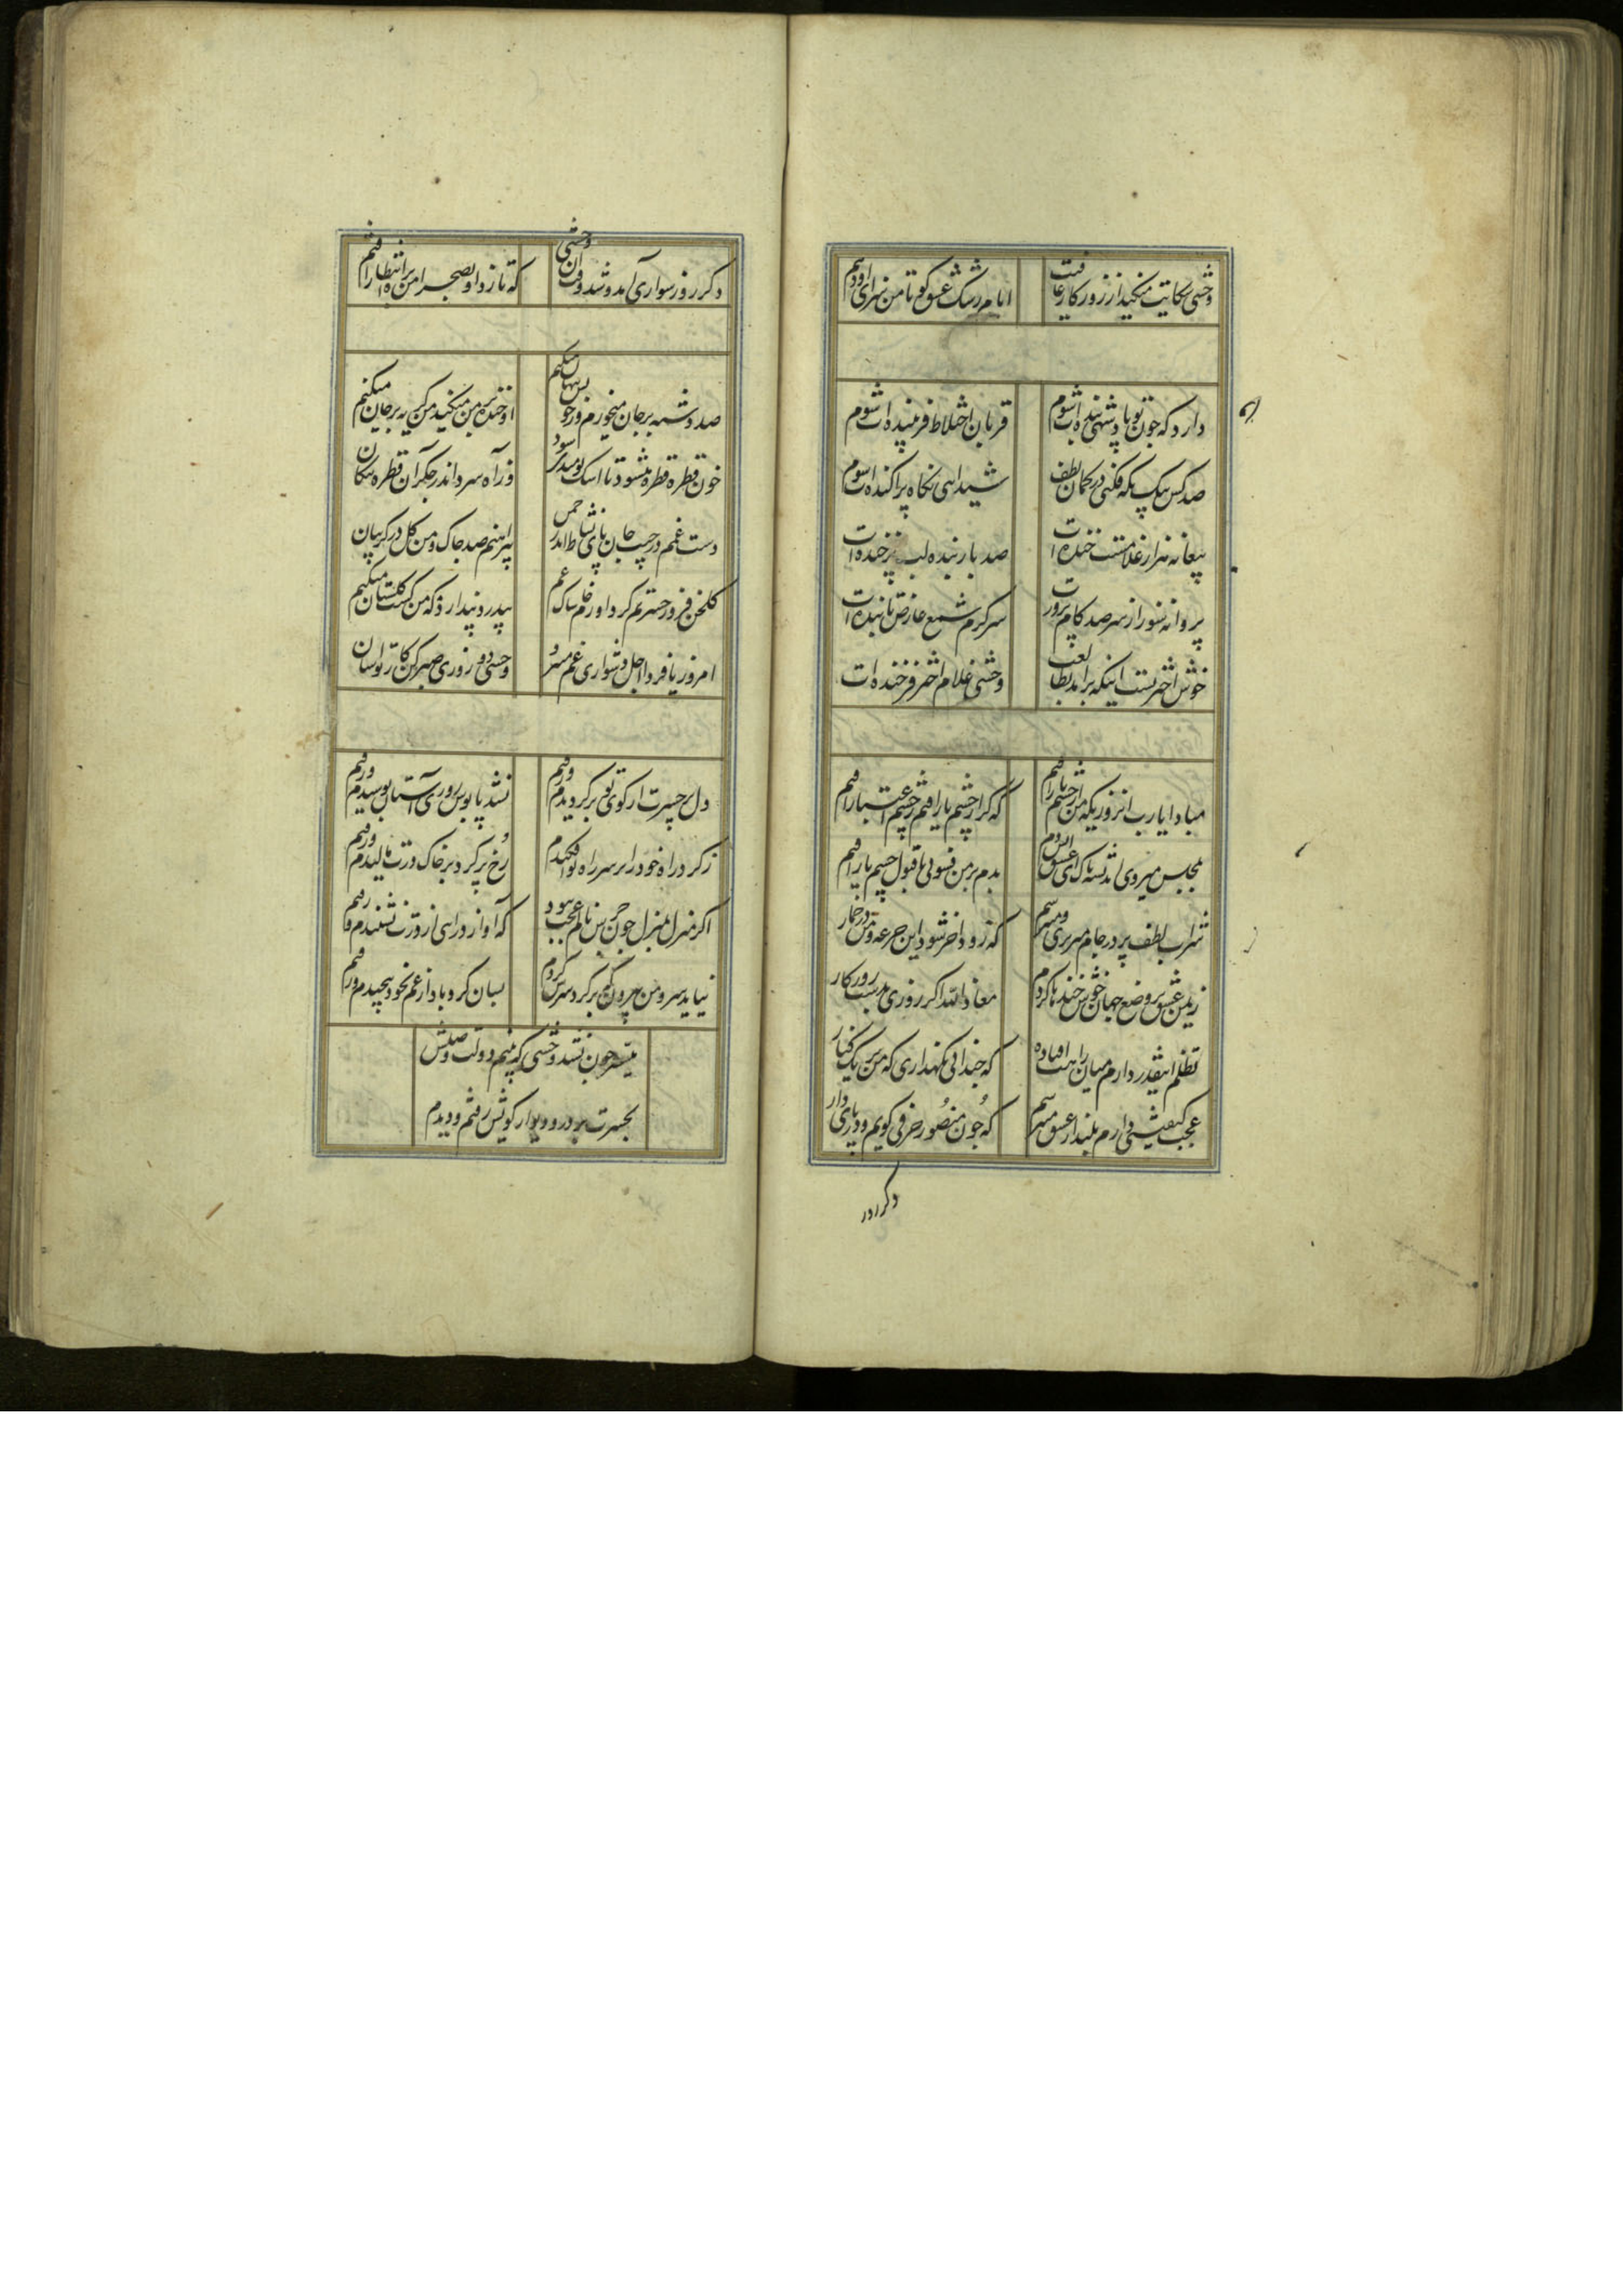 وحشی شکایت میکنید از روزکار عافیت
ایام رشک عشق کو تا من سزای او دهم
دارد که چون تو پادشهی بنده ات شوم
قربان اختلاط فریبنده ات شوم
صد کس بیک نکه فکنی در کمان لطف
شیدایی نکاه پراکنده ات شوم
بیعانه هزار غلامست خنده ات
صد بار بنده لب پرخنده ات
پروانه شور از سر صد کام پرورت
سرکرم شمع عارض تابنده ات
خوش اختریست اینکه برآمد بطالعت
وحشی غلام اختر فرخنده ات
مبادا یارب انروزیکه من از چشم یار افتم
که کر از چشم یار افتم ز چشم اعتبار افتم
مجلس میروی
بدم بر من فسونی تا قبول چشم یار افتم
شراب لطف پر در جام میریزی و میترسم
که زود اخر شود این جرعه و من در خمار
ز یمن عشق بر وضع جهان خوش خنده ها کردم
معاذ الله اکر روزی بدست روزکار
تظلم اینقدر دارم میان راهت افتاده
که چندانی نکهداری که من بر یک کنار
عجب کیفیتی دارم بلند از عشق میترسم
که چون منصور حرفی کویم و در پای دار
دکر روز
دکر روز سواری آمد و شد وقت آن وحشی
که تا زد او بصحرا من براه انتظار افتم
صد دشنه بر جان میخورم و ز خویش پنهان میکنم
او خنده بر من میکند من کریه بر جان میکنم
خون قطره قطره میشود تا اشک نومیدی شود
و ز آه سرد اندر جکر آن قطره پیکان
دست غمم در جیب جان پای نشاط اندر چمن
پیراهنم صد چاک و من کل در کریبان
کلخن فروز حسرتم کرد آورد خاشاک غم
بیدرد پندارد که من کشت کلستان میکنم
امروز یا فردا اجل دشواری غم میبرد
وحشی دو روزی صبر کن کارت آسان
دل پر حسرت از کوی تو برکردیدم و رفتم
نشد پابوس روزی آستان بوسیدم و رفتم
ز کرد راه خود را بر سر راه تو افکندم
رخ پر کرد بر خاک درت مالیدم و رفتم
اکر منزل بمنزل چون جرس نالم عجب نبود
که آواز درایی از درت نشنیدم و رفتم
نیاید سرو من بیرون که بر کرد سرش کردم
بسان کردباد از غم بخود پیچیدم و رفتم
میسر چون نشد وحشی که بینم دولت وصلش
بحسرت بر در و دیوار کویش رفتم و دیدم